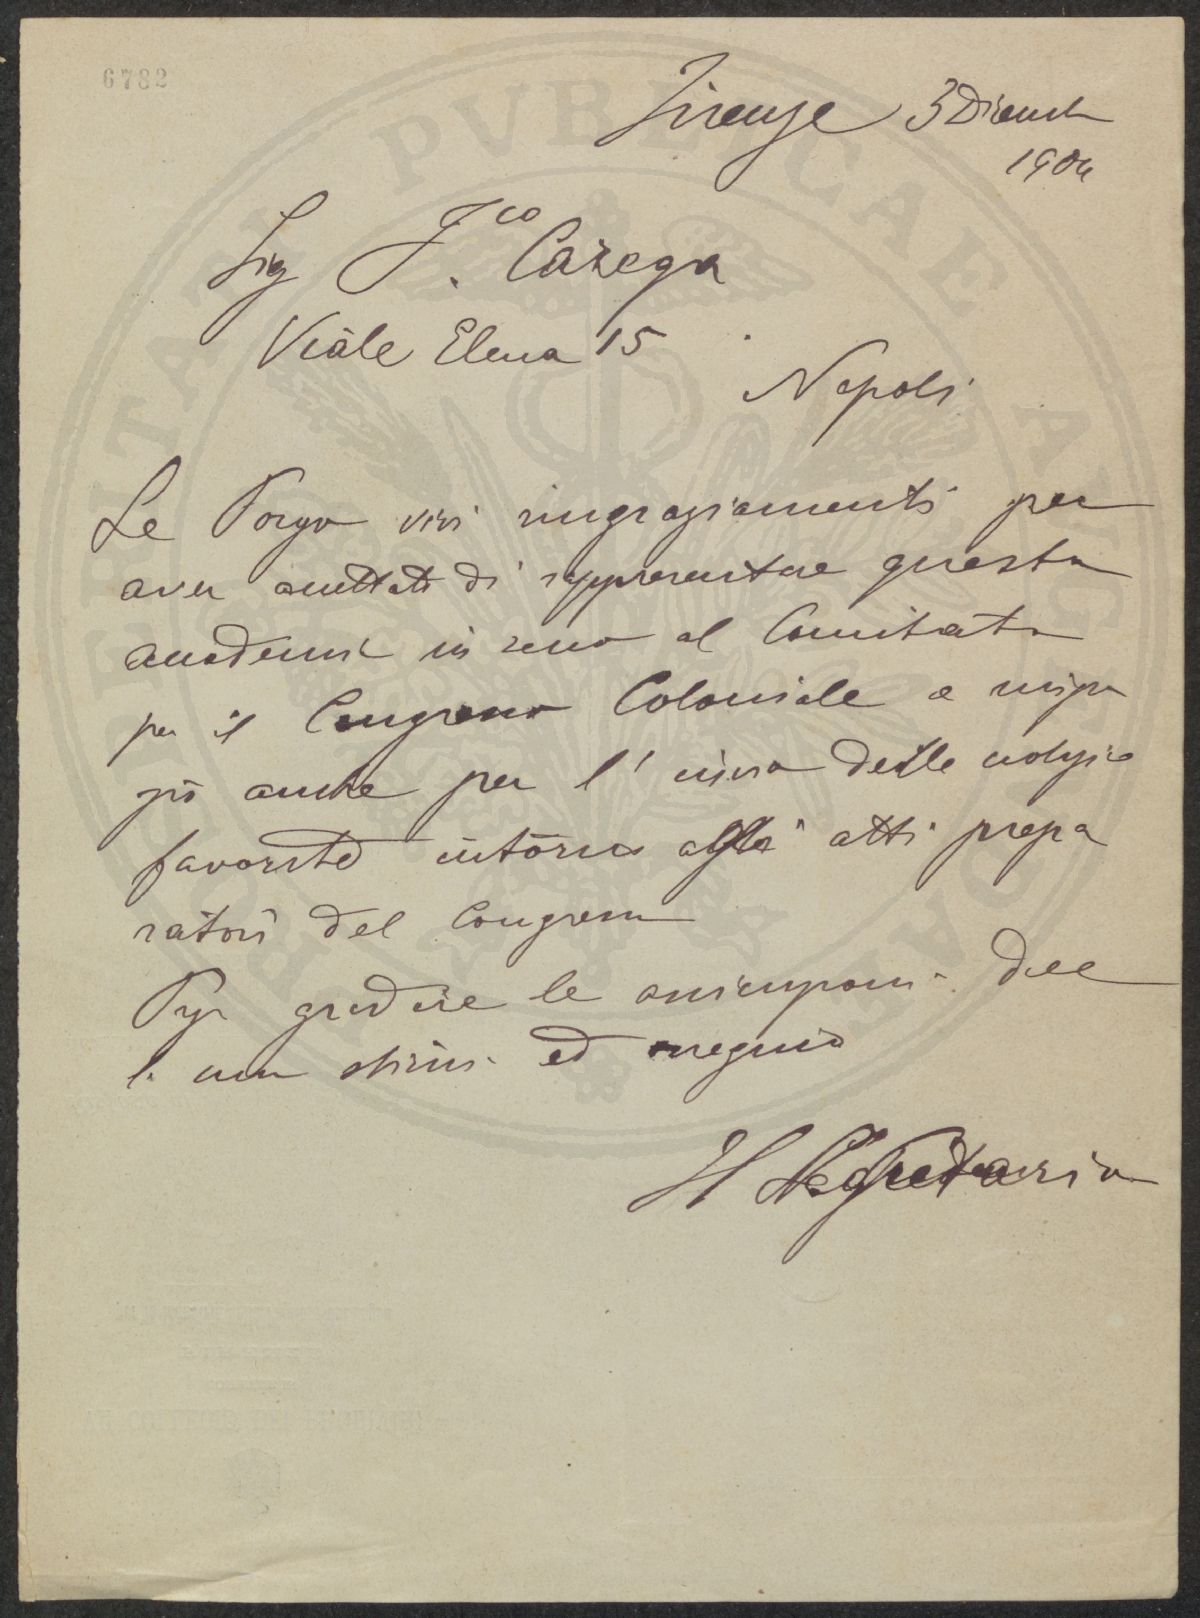 6782
Firenze 3 Dicemb
1904
Sig F.co Carega
Viale Elena 15
Napoli
Le Porgo vivi ringraziamenti per
aver accettato di rappresentare questa
accademia in seno al Comitato
per il Congresso Coloniale e ringra
zio anche per l'invio delle notizie
favorite intorno agli atti prepa
ratori del Congresso
gradire le del
l. mia stima ed ossequio
Il Segretario